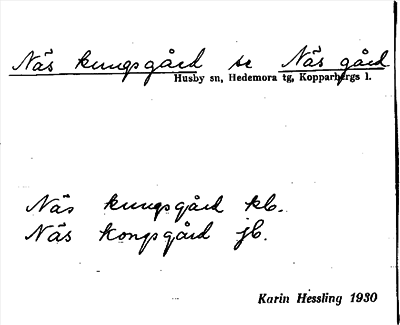 Näs kungsgård se Näs gård
Husby sn, Hedemora tg, Kopparbergs l.
Näs kungsgård kb.
Näs Kongsgård jb.
Karin Hessling 1930